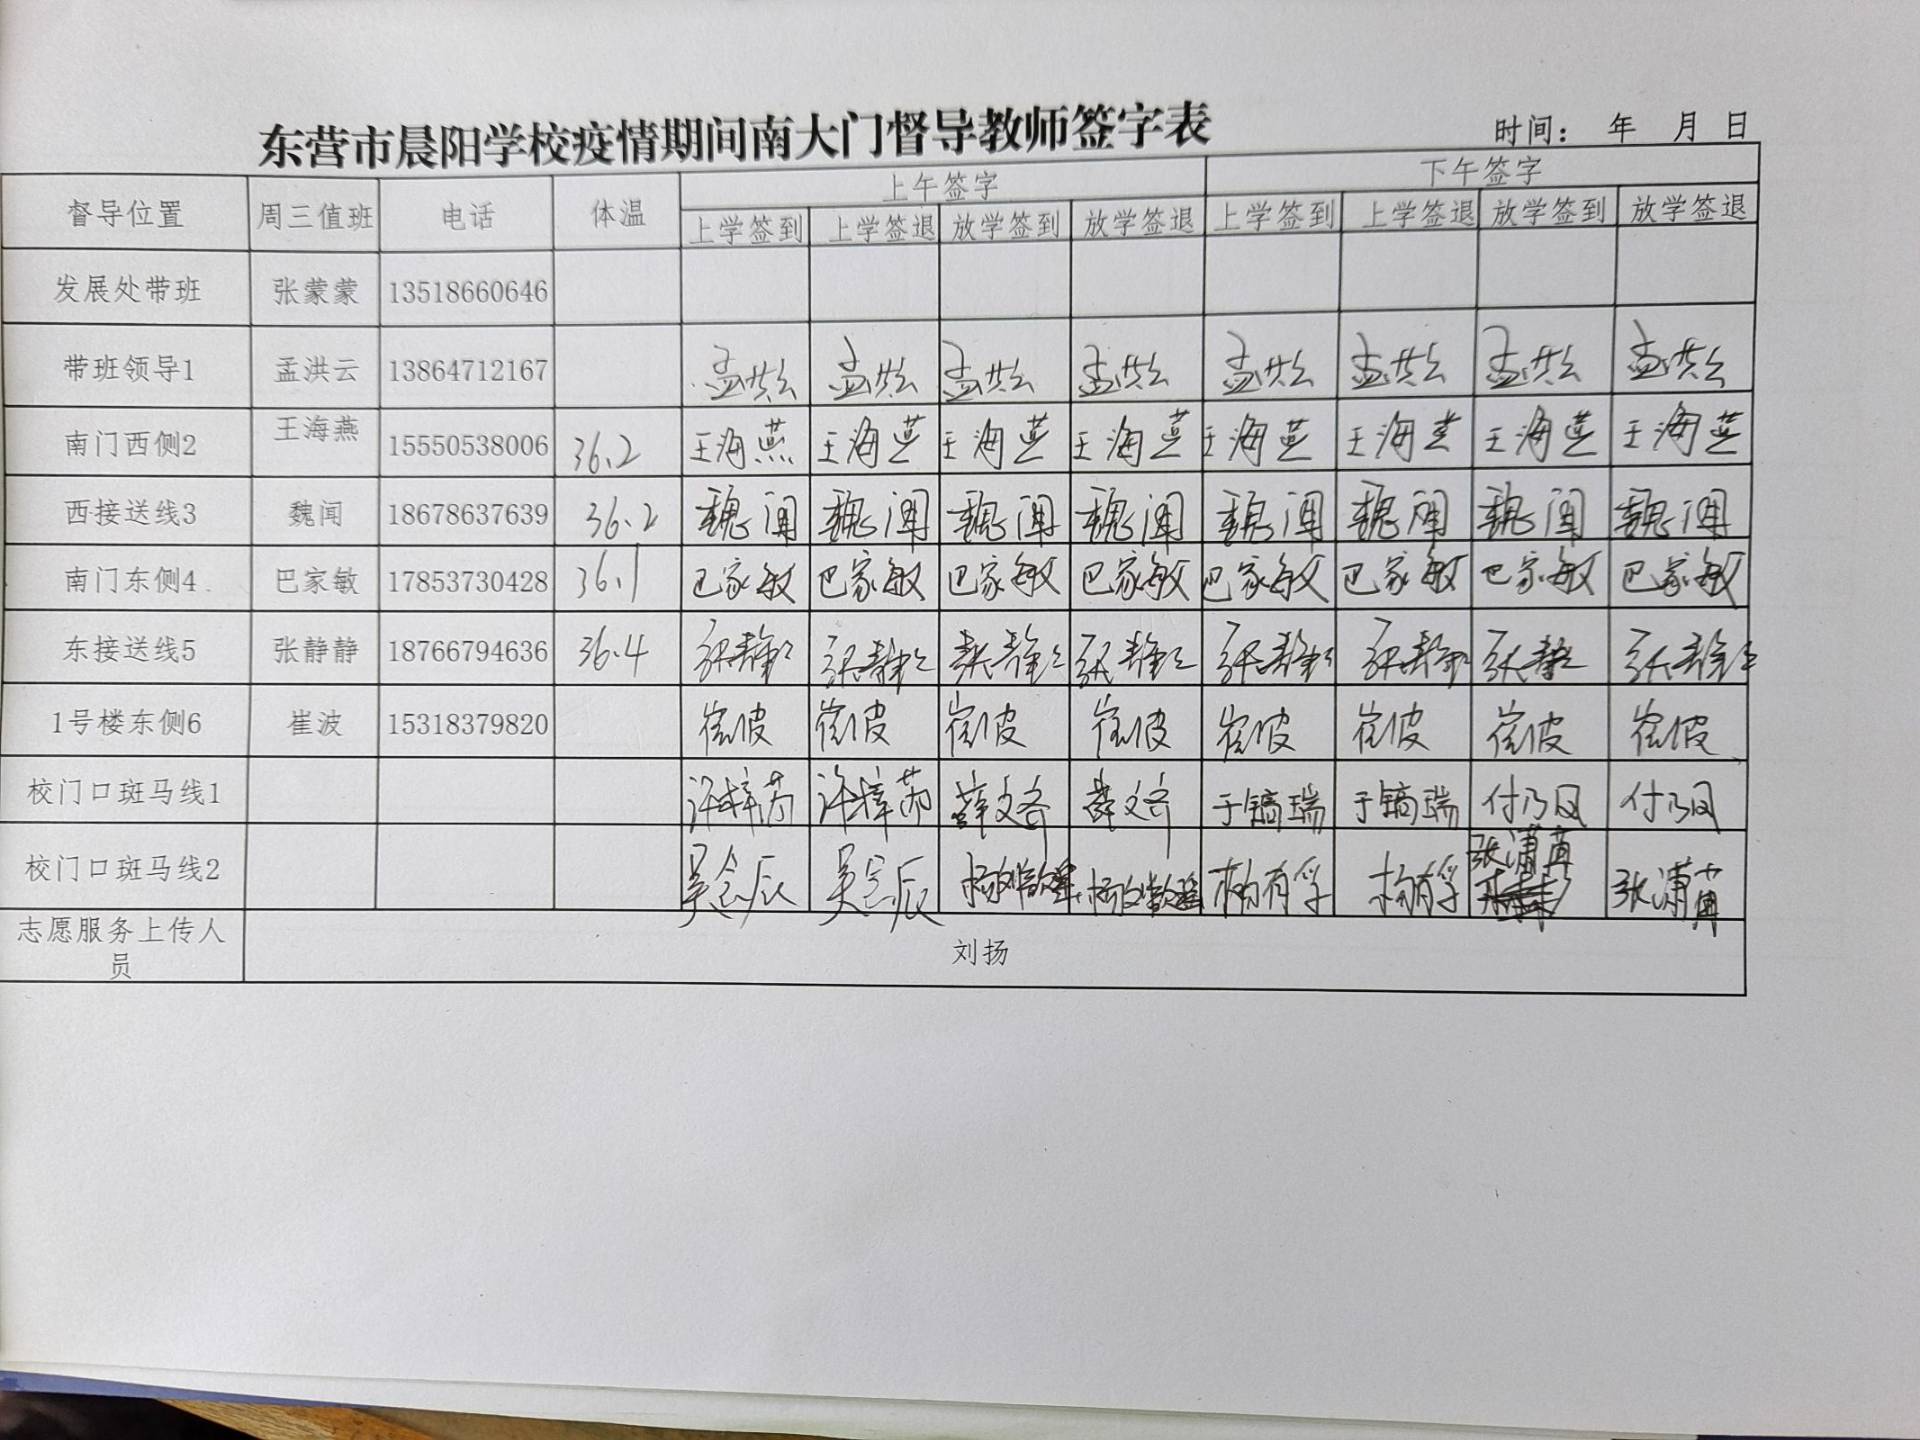 东营市晨阳学校疫情期间南大门督导教师签字表
时间： 年 月 日
督导位置 周三值班 电话 体温 上午签字 下午签字
上学签到 上学签退 放学签到 放学签退 上学签到 上学签退 放学签到 放学签退
发展处带班 张蒙蒙 13518660646
带班领导1 孟洪云 13864712167 孟洪云 孟洪云 孟洪云 孟洪云 孟洪云 孟洪云 孟洪云 孟洪云
南门西侧2 王海燕 15550538006 36.2 王海燕 王海燕 王海燕 王海燕 王海燕 王海燕 王海燕 王海燕
西接送线3 魏闻 18678637639 36.2 魏闻 魏闻 魏闻 魏闻 魏闻 魏闻 魏闻 魏闻
南门东侧4 巴家敏 17853730428 36.1 巴家敏 巴家敏 巴家敏 巴家敏 巴家敏 巴家敏 巴家敏 巴家敏
东接送线5 张静静 18766794636 36.4 张静静 张静静 张静静 张静静 张静静 张静静 张静静 张静静
1号楼东侧6 崔波 15318379820 崔波 崔波 崔波 崔波 崔波 崔波 崔波 崔波
校门口斑马线1 许梓芮 许梓芮 薛文齐 薛文齐 于镐瑞 于镐瑞 付乃凤 付乃凤
校门口斑马线2 柏有孚 柏有孚 张潇苒 张潇苒
志愿服务上传人
员
刘扬